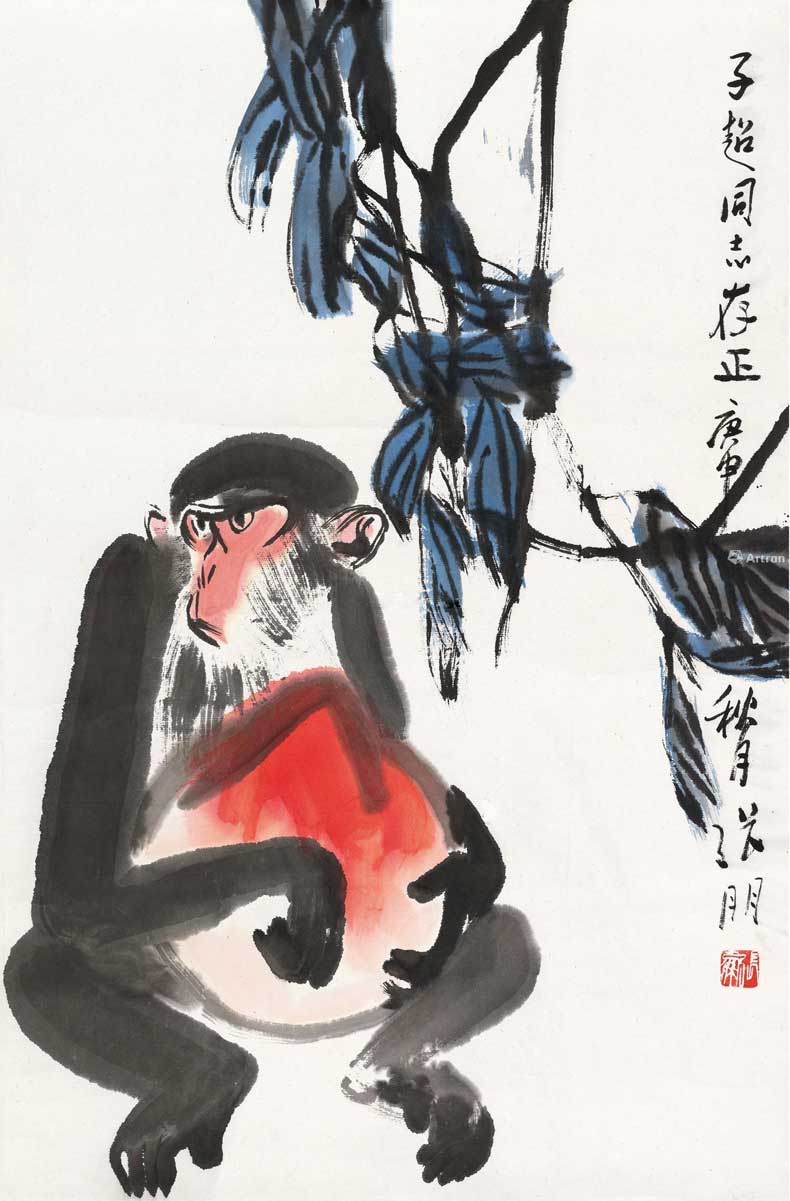 子超同志存正 庚申秋月 张朋
Artron